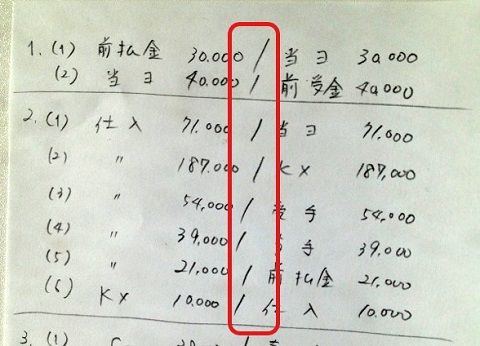 1. (1) 前払金 30.000 / 当ヨ 30.000
(2) 当ヨ 40.000 / 前受金 40.000
2. (1) 仕入 71.000 / 当ヨ 71.000
(2) 〃 187.000 / K× 187,000
(3) 〃 54,000 / 受手 54,000
(4) 〃 39,000 / 手 39.000
(5) 〃 21,000 / 前払金 21,000
(6) K× 10.000 / 仕入 10.000
3. (1)